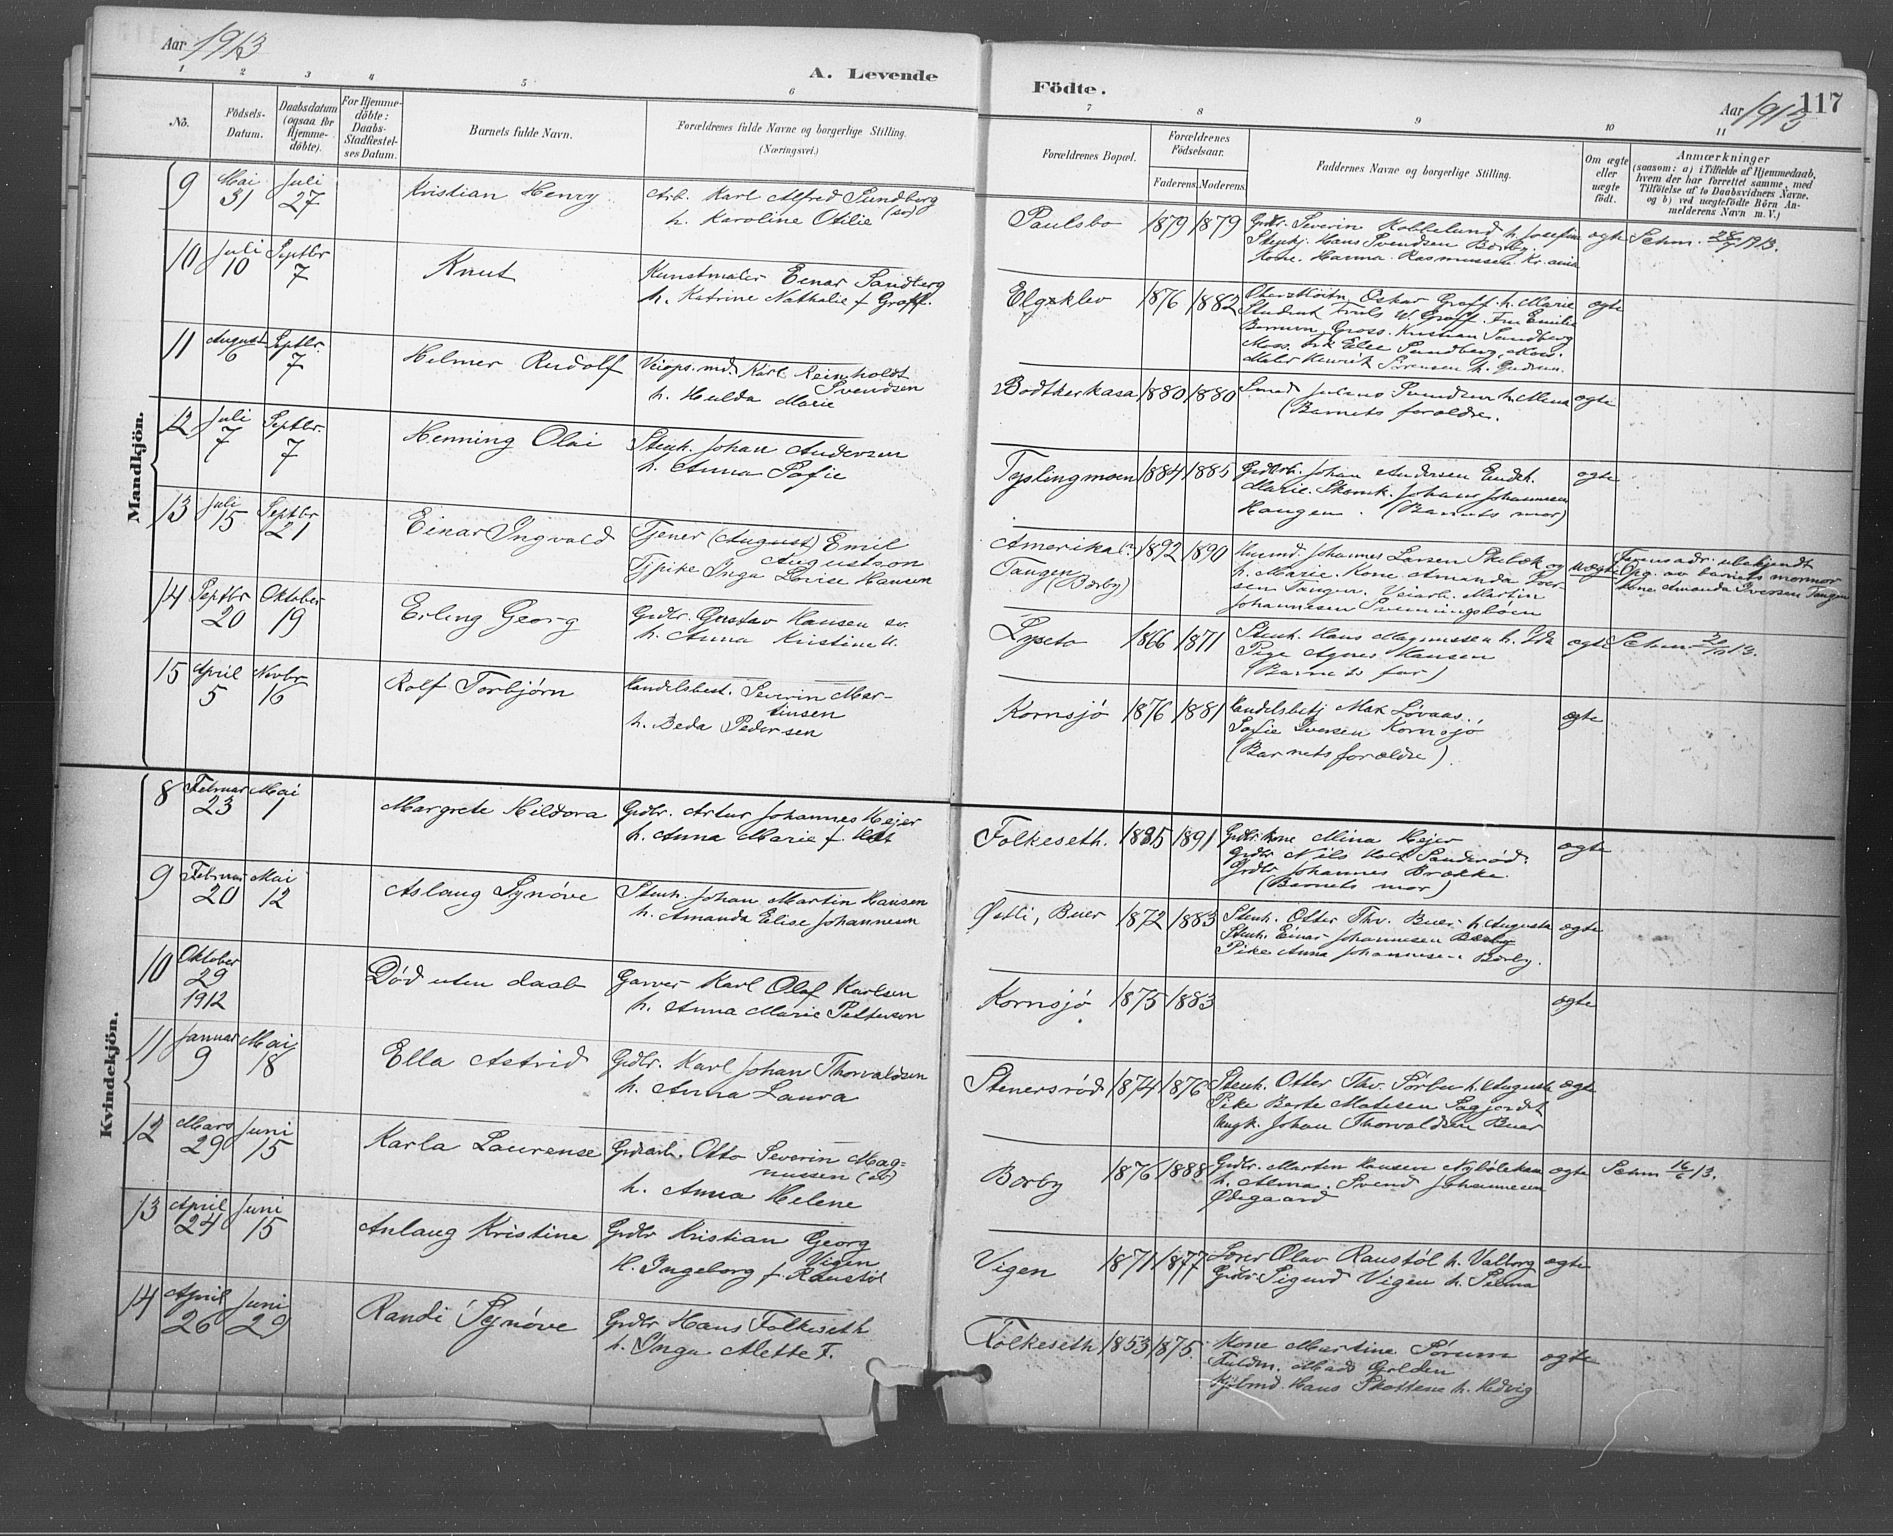 Aar 1913
A. Levende
Födte.
Aar 1913
117
1 2 3 4 5 6 7 8 9 10 11
No.
Födsels-
Datum.
Daabsdatum
(ogsaa for
Hjemme-
döbte).
For Hjemme-
döbte:
Daabs-
Stadfæstel-
ses Datum.
Barnets fulde Navn.
Forældrenes fulde Navne og borgerlige Stilling.
(Næringsvei.)
Forældrenes Bopæl.
Forældrenes
Födselsaar.
Faderens. Moderens.
Faddernes Navne og borgerlige Stilling.
Om ægte
eller
uægte
födt.
Anmærkninger
(saasom: a) i Tilfælde af Hjemmedaab,
hvem der har forrettet samme, med
Tilföielse af to Daabsvidners Navne,
og b) ved uægtefödte Börn An-
melderens Navn m. V.)
Mandkjön.
9 Mai 31 Juli 27 Kristian Henry
Arb. Karl Alfred Sundberg (sv)
h. Karoline Otilie
Paulsbo 1879 1879
Grdbr. Severin Kobbelund h. Josefine
Stenhj. Hans Svendsen Börby.
Kone. Hanna Rasmussen Kr.ania
ægte
28/7 1913.
10 Juli 10 Septbr 7 Knut
Kunstmaler Einar Sandberg
h. Katrine Nathalie f Graff.
Elgeklev 1876 1882
Oskar Graff h. Marie
Student W. Graff. Fru Emilie
Sundberg
Moss. Sundberg, Moss.
Maler Henrik Sörensen h. Gudrun.
ægte
11 August 6 Septbr. 7 Helmer Rudolf
Veiops.md. Karl Reinholdt
Svendsen
h. Hulda Marie
Bodtkerkasa 1880 1880
Smed Julius Svendsen h. Mina
(Barnets forældre.
ægte
12 Juli 7 Septbr. 7 Henning Olai
Stenh. Johan Andersen
h. Anna Sofie
Tyslingmoen 1884 1885
Johan Andersen
Marie. Johans Johannesen
Haugen. (Barnets mor)
ægte
13 Juli 15 Septbr 21 Einar Ingvald
Tjener (August) Emil
Augustson
Tj pike Inga Lovise Hansen
Tangen
(Börby)
1892 1890
Johannes Larsen
h. Marie. Kone Amanda Iver-
sen Tangen. Martin
Johannesen
uægte
Opg. av barnets mormor
Kone Amanda Iversen Tangen
14 Septbr 20 Oktober 19 Erling Georg
Grdbr. Gustav Hansen sv.
h. Anna Kristine
Lyseto 1866 1871
Stenh. Hans Magnussen h. Ida
Pige Agnes Hansen
(Barnets far)
ægte
15 April 5 Novbr 16 Rolf Torbjörn
Handelsbest. Severin Mar-
tinsen
h. Beda Pedersen
Kornsjö 1876 1881
Handelsbetj Max Lövaas.
Sofie Iversen Kornsjö
(Barnets forældre).
ægte
Kvindekjön.
8 Februar 23 Mai 1 Margrete Hildora
Grdbr. Artur Johannes Hejer
h. Anna Marie f.
Folkeseth. 1891
Grdbr. kone Mina Hejer
Grdbr Nils Sanderöd.
Grdbr Johannes Brække.
(Barnets mor)
ægte
9 Februar 20 Mai 12 Aslaug Synöve
Stenh. Johan Martin Hansen
h. Amanda Elise Johannesen
Östli, Buer 1872 1883
Stenh. Otter Thv. Buer h. Augusta
Stenh. Einar Johannesen Börby
Pike Anna Johannesen Börby.
ægte
10 Oktober 29 1912
Död uten daab
Garver Karl Olaf Karlsen
h. Anna Marie Petterson
Kornsjö 1875 1883
ægte
11 Januar 9 Mai 18 Ella Astrid
Grdbr. Karl Johan Thorvaldsen
h. Anna Laura
Stenersröd 1874 1876
Stenh. Otter Thv. h. Augusta
Pike Berte Matisen
Ungk. Johan Thorvaldsen Buer
ægte
12 Mars 29 Juni 15 Karla Laurense
Grdarb. Otto Severin Mag-
nussen (sv)
h. Anna Helene
Börby 1876 1888
Grdbr. Marten Hansen
h. Alma. Svend Johannesen
Ödegaard
ægte
16/6 13.
13 April 24 Juni 15 Anlaug Kristine
Grdbr Kristian Georg
Vigen
h. Ingeborg f. Raustöl
Vigen 1871 1877
Lærer Olav Raustöl h. Valborg
Grdbr. Sigurd Vigen h. Selma
ægte
14 April 26 Juni 29 Randi Synöve
Grdbr Hans Folkeseth
h. Inga Alette F.
Folkeseth 1853 1875
Kone Martine Sörum
Fuldm. Mads Grolden
Hans Skottene h. Hedvig
ægte